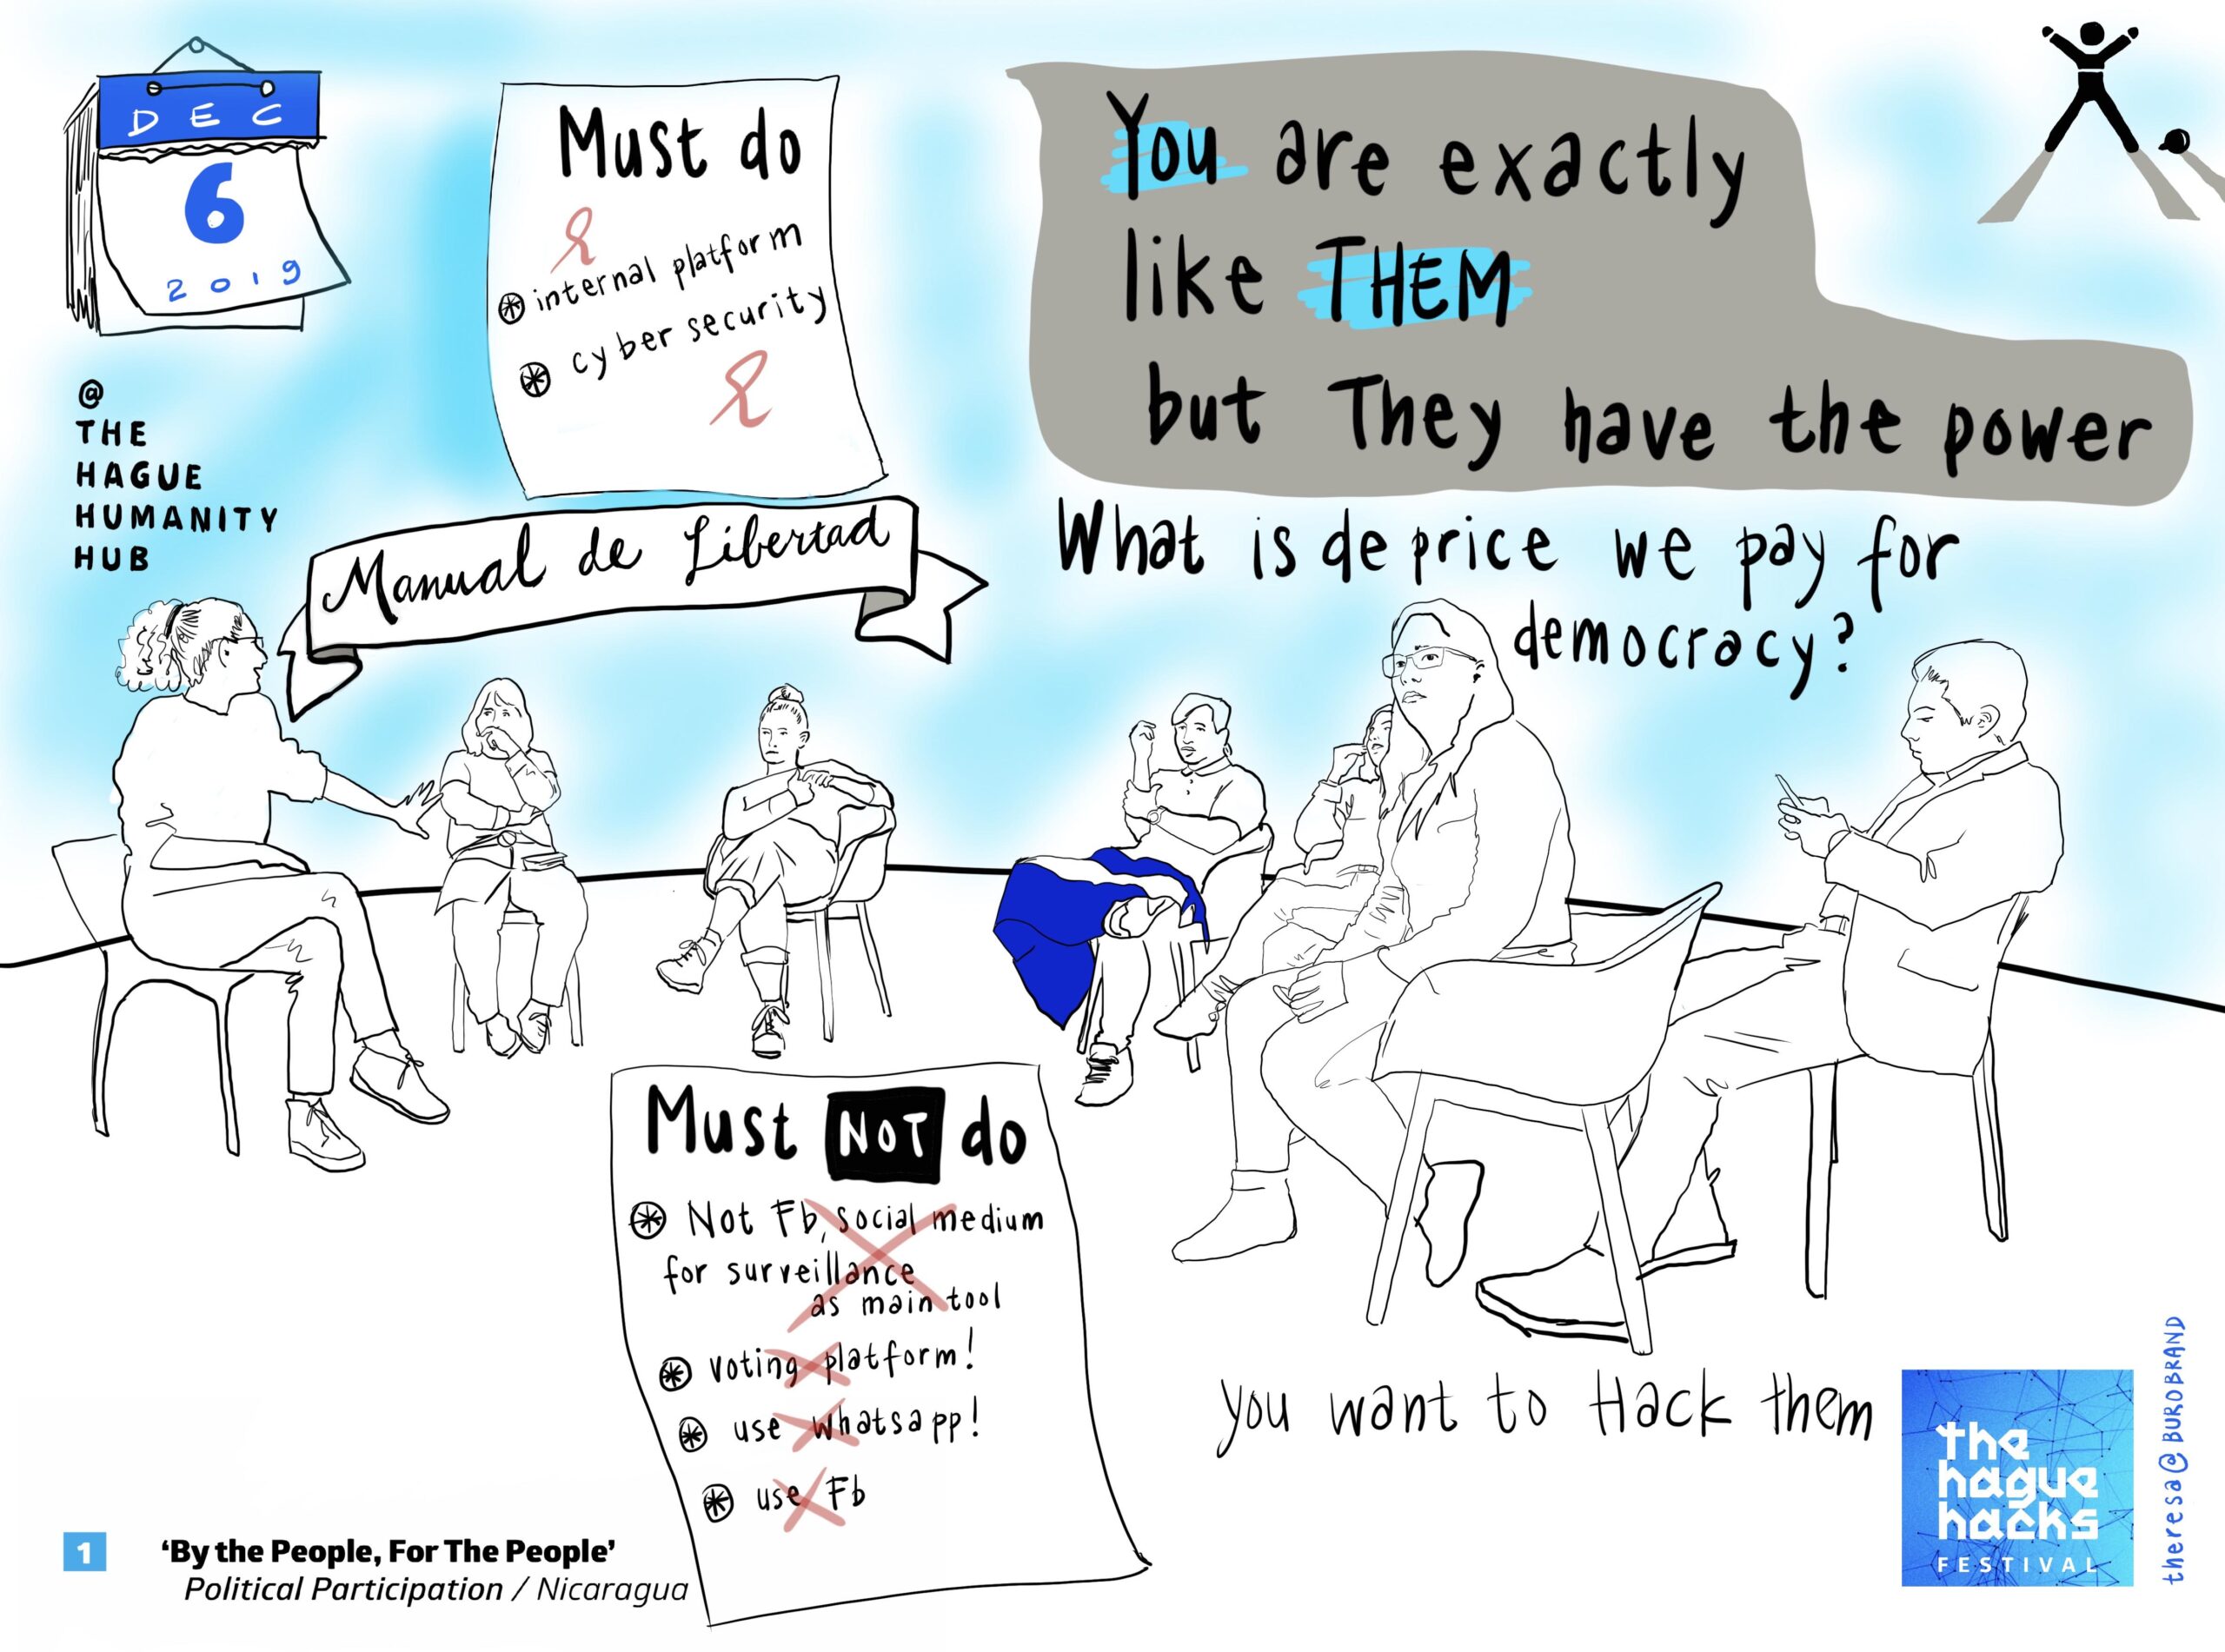 DEC
6
2019
@
THE
HAGUE
HUMANITY
HUB
Must do
internal platform
cyber security
Manual de Libertad
You are exactly
like THEM
but They have the power
What is de price we pay for
democracy?
Must NOT do
Not Fb, social medium
for surveillance
as main tool
voting platform!
use whatsapp!
use Fb
you want to Hack them
the
hague
hacks
FESTIVAL
theresa@BUROBRAND
1
‘By the People, For The People’
Political Participation / Nicaragua